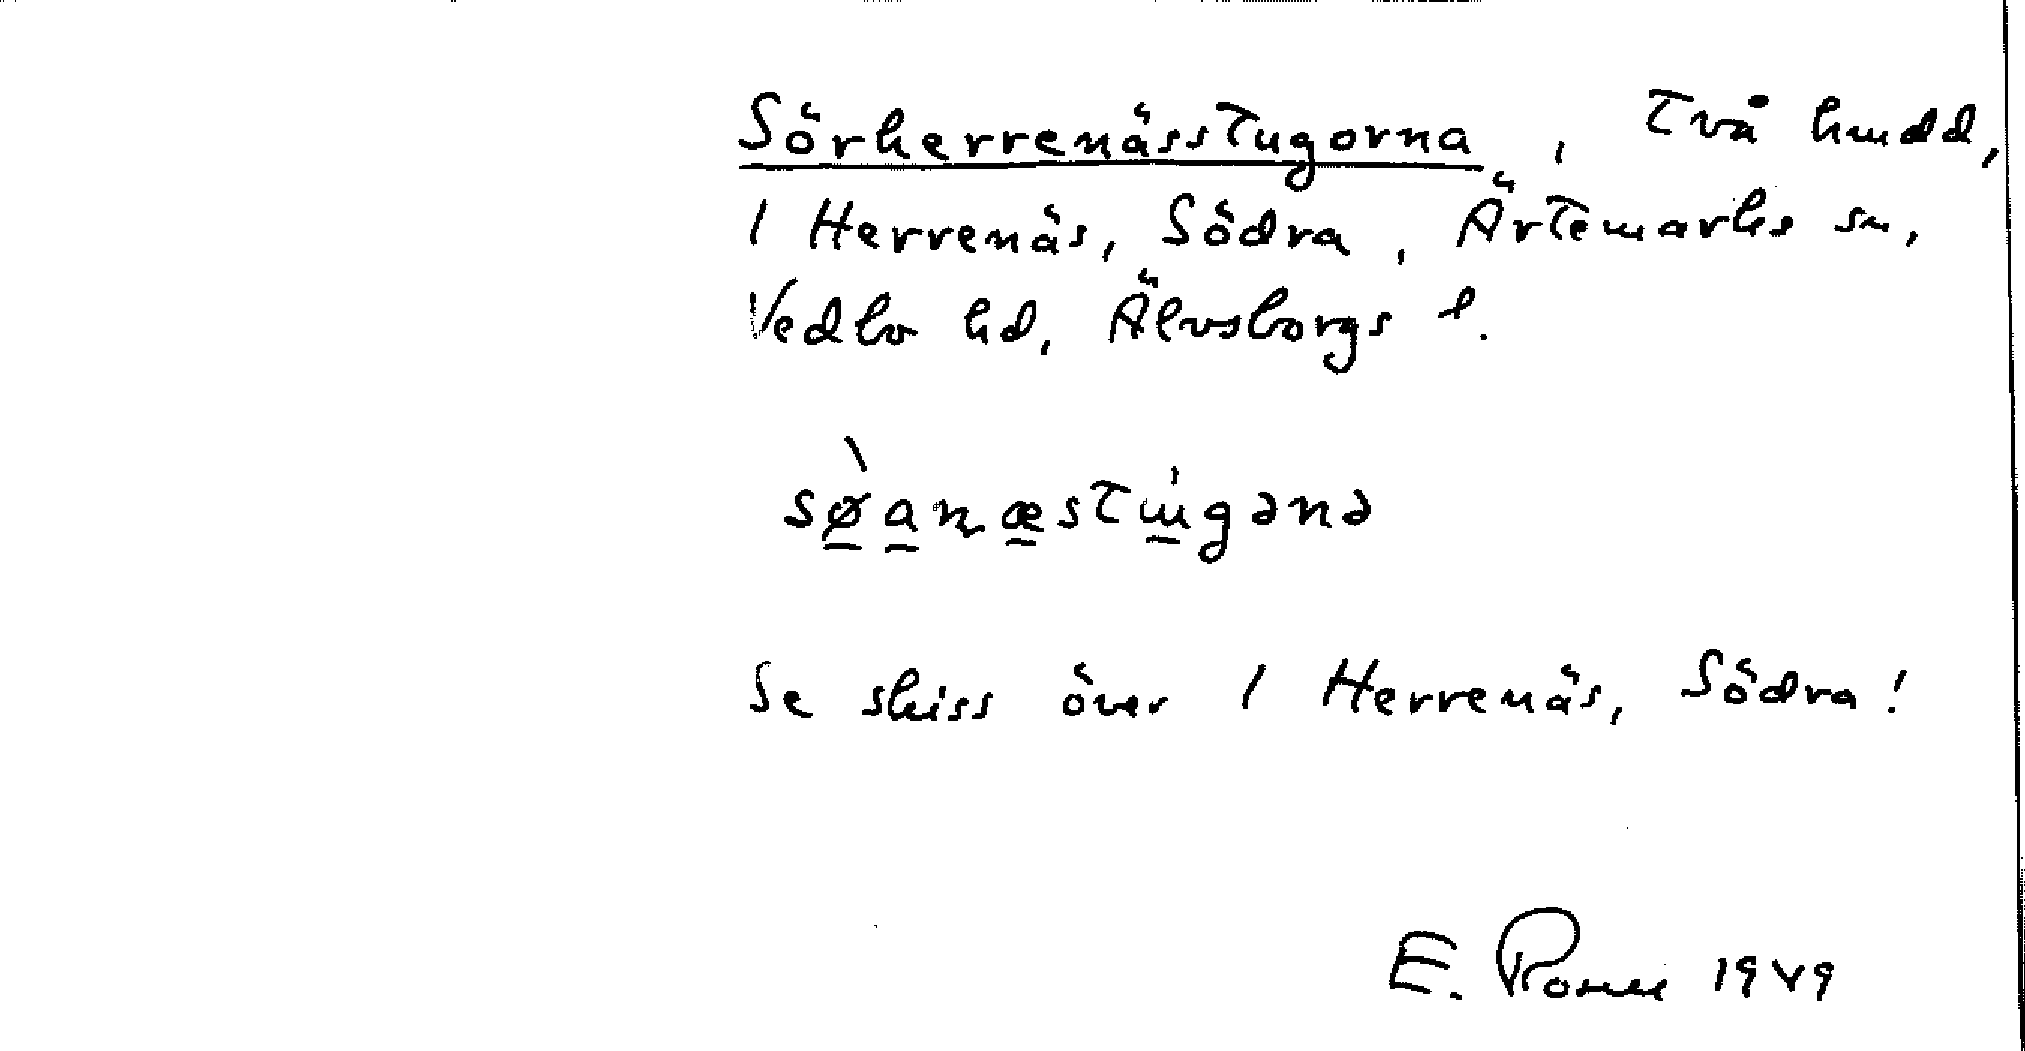 Sörherrenässtugorna, två hmdd,
1 Herrenäs, Södra, Ärtemarks sn,
Vedbo hd, Älvsborgs l.
sø̠̀a̠ɳæ̠stu̠̍gənə
Se skiss över 1 Herrenäs, Södra!
E. 1949